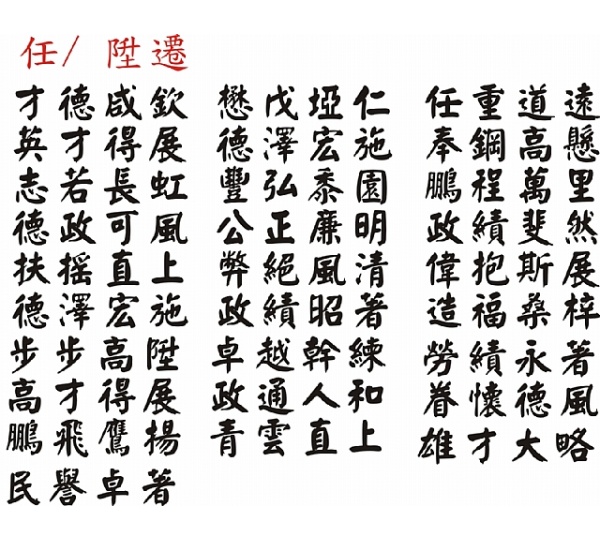 任/ 陞遷
才德咸欽
英才得展
志若長虹
德政可風
扶搖直上
德澤宏施
步步高陞
高才得展
鵬飛鷹揚
民譽卓著
懋戊埡仁
德澤宏施
豐弘黍園
公正廉明
弊絕風清
政績昭著
卓越幹練
政通人和
青雲直上
任重道遠
奉鋼高懸
鵬程萬里
政績斐然
偉抱斯展
造福桑梓
勞績永著
眷懷德風
雄才大略